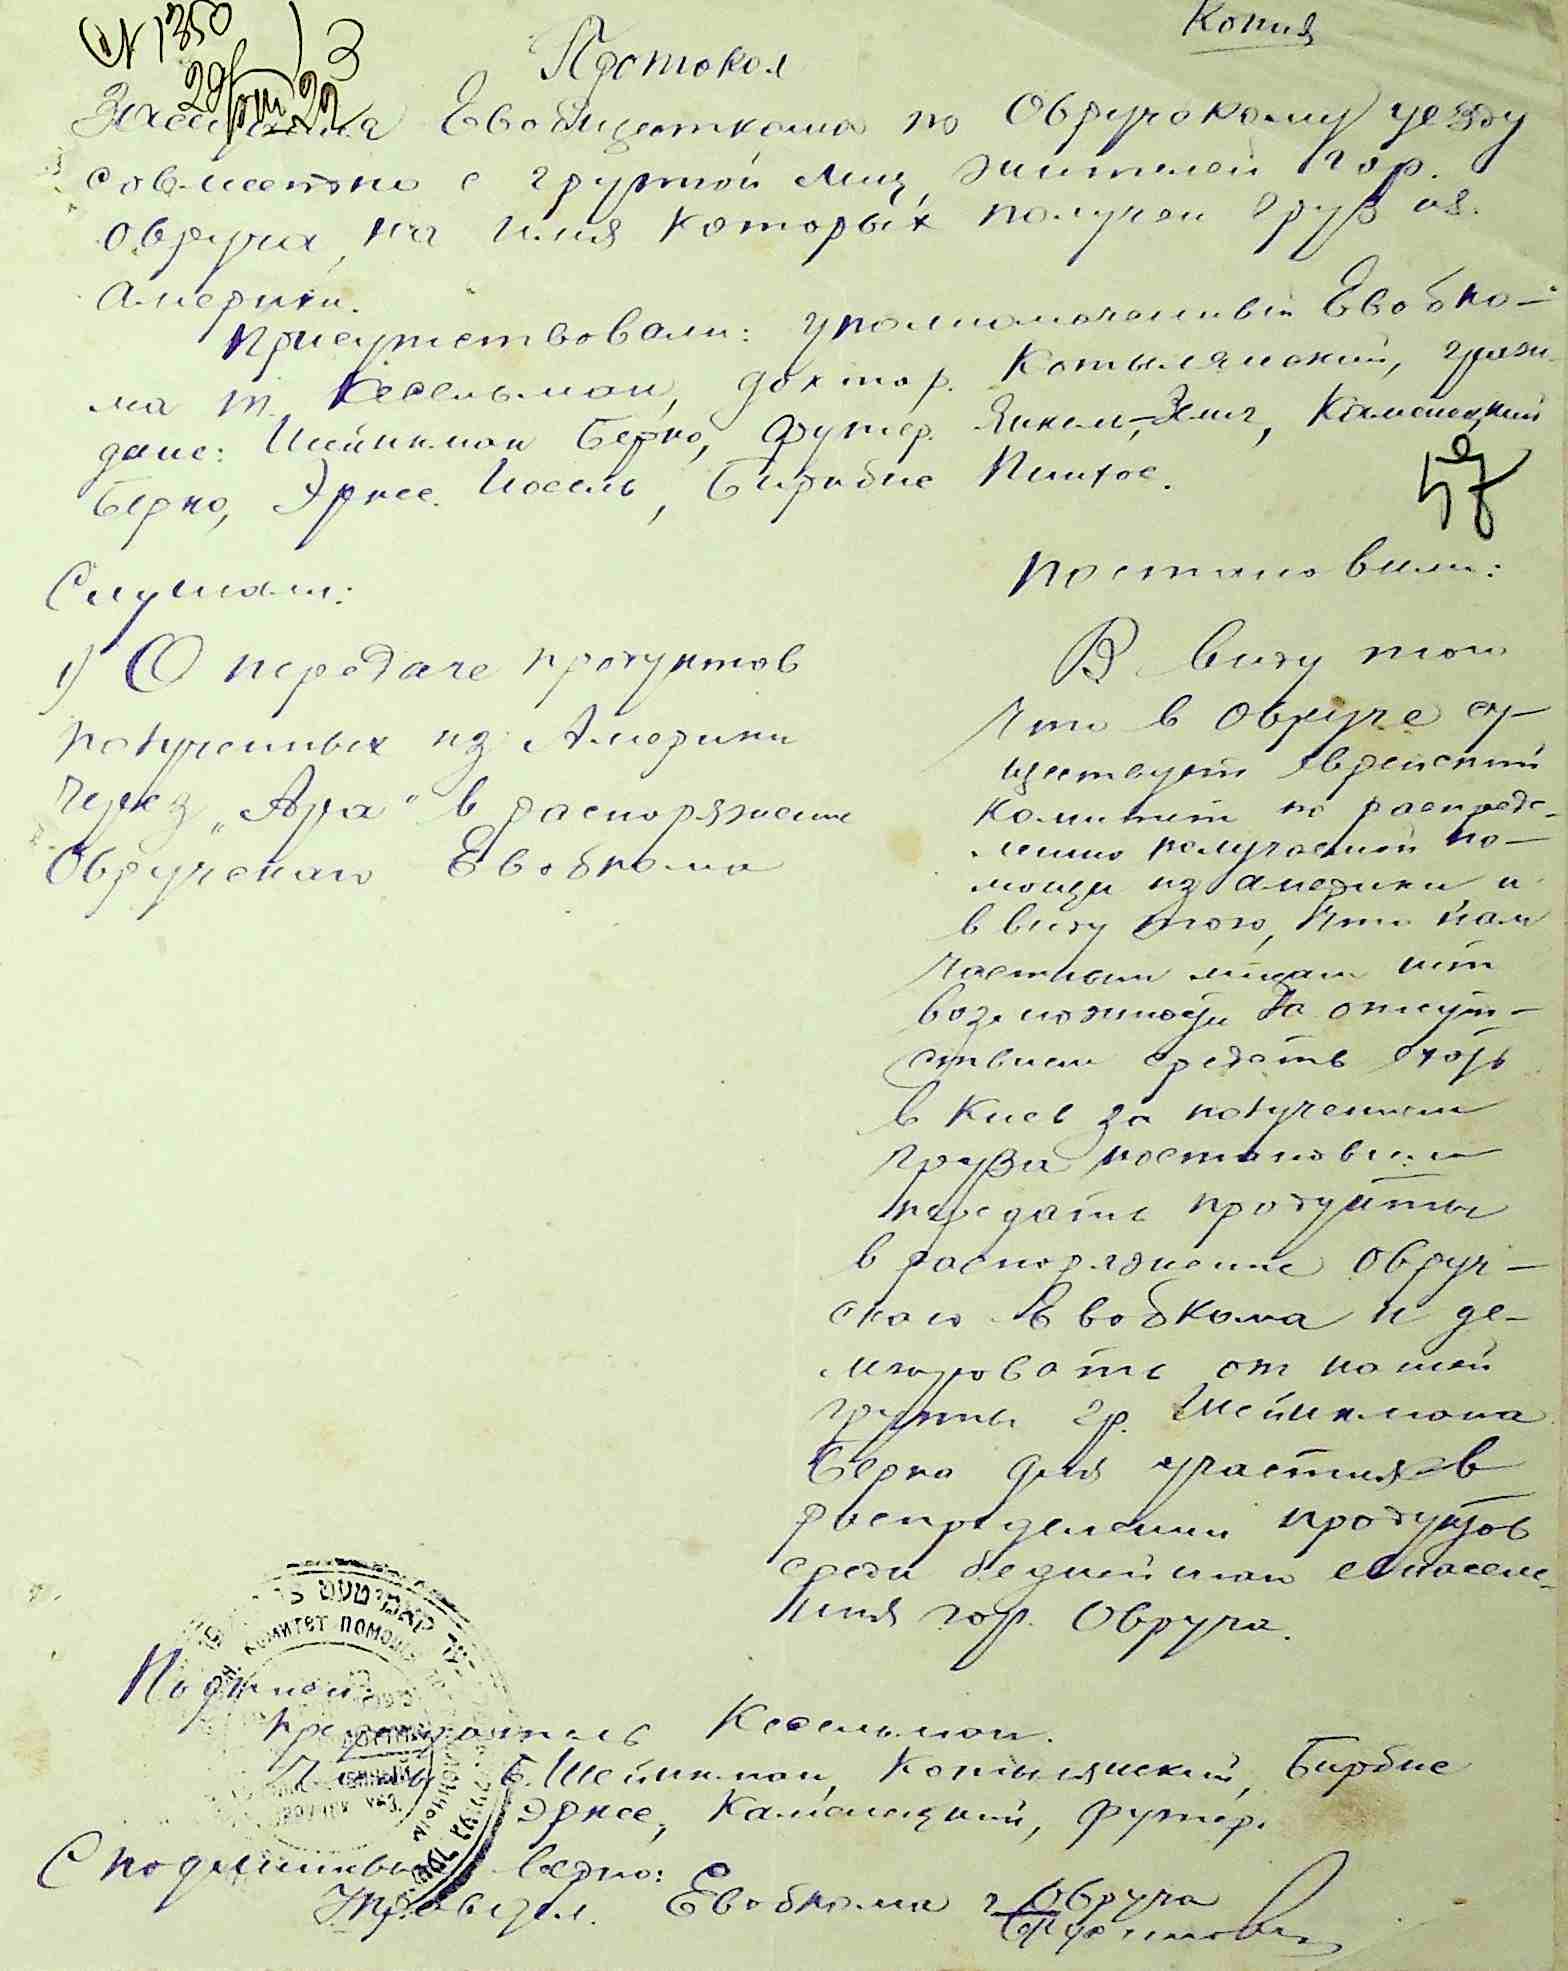 Копия
N 1350
Протокол
29/VIII 22
Заседания Евобщесткома по Овручскому уезду
совместно с группой лиц, жителей гор.
Овруча, на имя которых получен груз из
Америки.
Присутствовали: уполномоченный Евобко-
ма т. Кесельман, доктор Котылянский, граж-
дане: Шейнкман Берко, Футер Янкель-Зелиг, Каменецкий
Берко, Эркес Иосель, Бирбис Пинхос.
Слушали:
1) О передаче продуктов
полученных из Америки
через „Ара" в распоряжение
Овручскаго Евобкома
Постановили:
В виду того
что в Овруче су-
ществует Еврейский
комитет по распреде-
лению получаемой по-
мощи из Америки и
в виду того, что нам
частным лицам нет
возможности за отсут-
ствием средств ехать
в Киев за получением
груза постановили
передать продукты
в распоряжение Овруч-
скаго Евобкома и де-
легировать от нашей
группы гр. Шейнкмана
Берко для участия в
распределении продуктов
среди беднейшаго населе-
ния гор. Овруча.
КОМИТЕТ ПОМОЩИ
Подписали:
Председатель Кесельман.
Члены Б. Шейнкман, Котылянский, Бирбис
Эркес, Каменецкий, Футер.
С подлинным верно:
Управдел. Евобкома г. Овруча